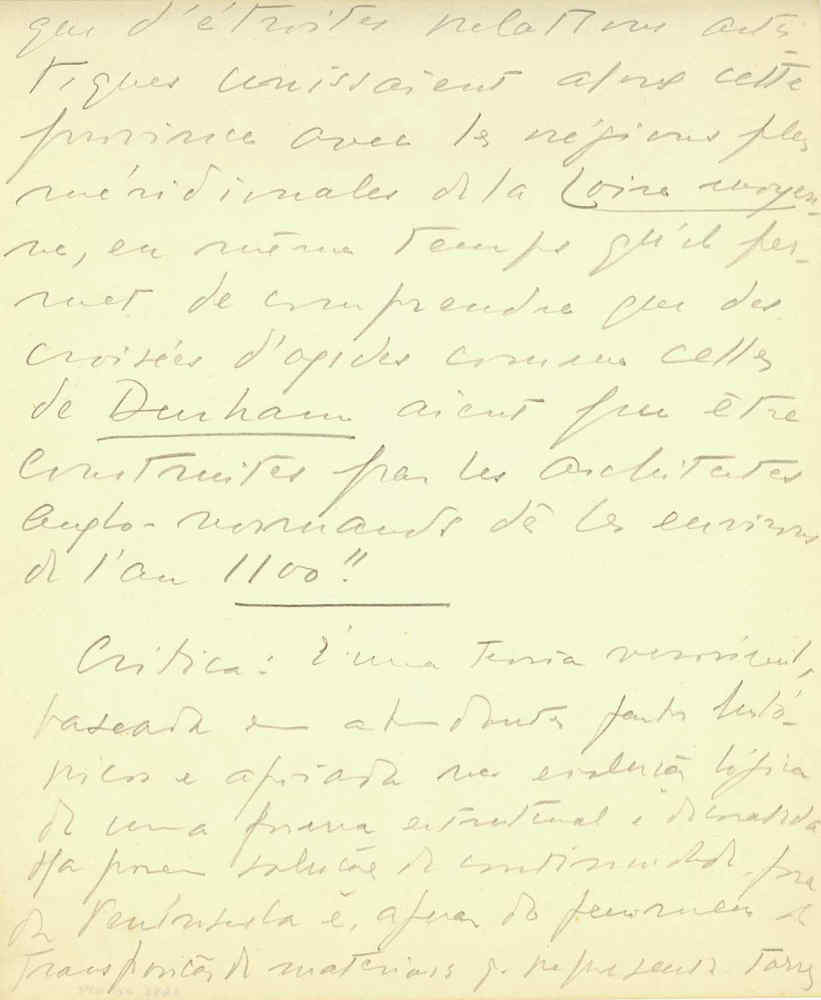 que d'étroites relations artis-
tiques unissaient alors cette
province avec les régions plus
méridionales de la Loire moyen-
ne, en même temps qu'il per-
met de comprendre que des
croisées d'ogives comme celles
de Durham aient pu être
construites par les architectes
anglo-normands dès les environs
de l'an 1100".
Critica: É uma teoria verosimil,
baseada em abundantes factos histó-
ricos e apoiada na evolução lógica
de uma forma estrutural e decorativa
Ha porem solução de continuidade fora
da Peninsula e, apesar do fenomeno de
transposição de materiais q. representa Torres